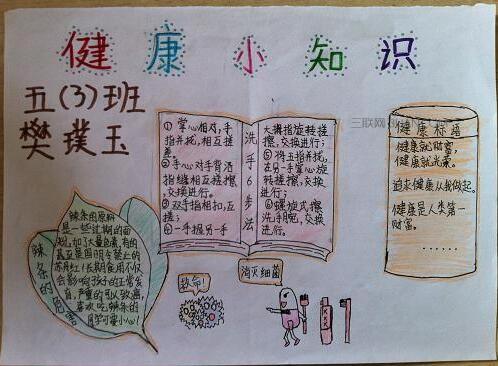 健康小知识
五(3)班
樊璞玉
三联网
洗手6步法
① 掌心相对,手
指并拢,相互搓
擦;
② 手心对手背沿
指缝相互搓擦,
交换进行;
③ 双手指相扣,互
搓;
④ 一手握另一手
大拇指旋转搓
擦,交换
进行;
⑤ 将五指并拢,
在另一手掌心旋
转搓擦,交换
进行;
⑥ 螺旋式擦
洗手腕,交换
进行。
健康标语
健康就财富,
健康就光荣。
追求健康从我做起。
健康是人类第一
财富。
......
辣条的危害
辣条的原料
是一些过期的面
粉,加了大量色素,有的
甚至是国明令禁止的
苏丹红!长期食用不仅
会影响孩子的正常发
育,严重的可以致癌,
喜欢吃辣条的
同学可要小心!
救命!
消灭细菌